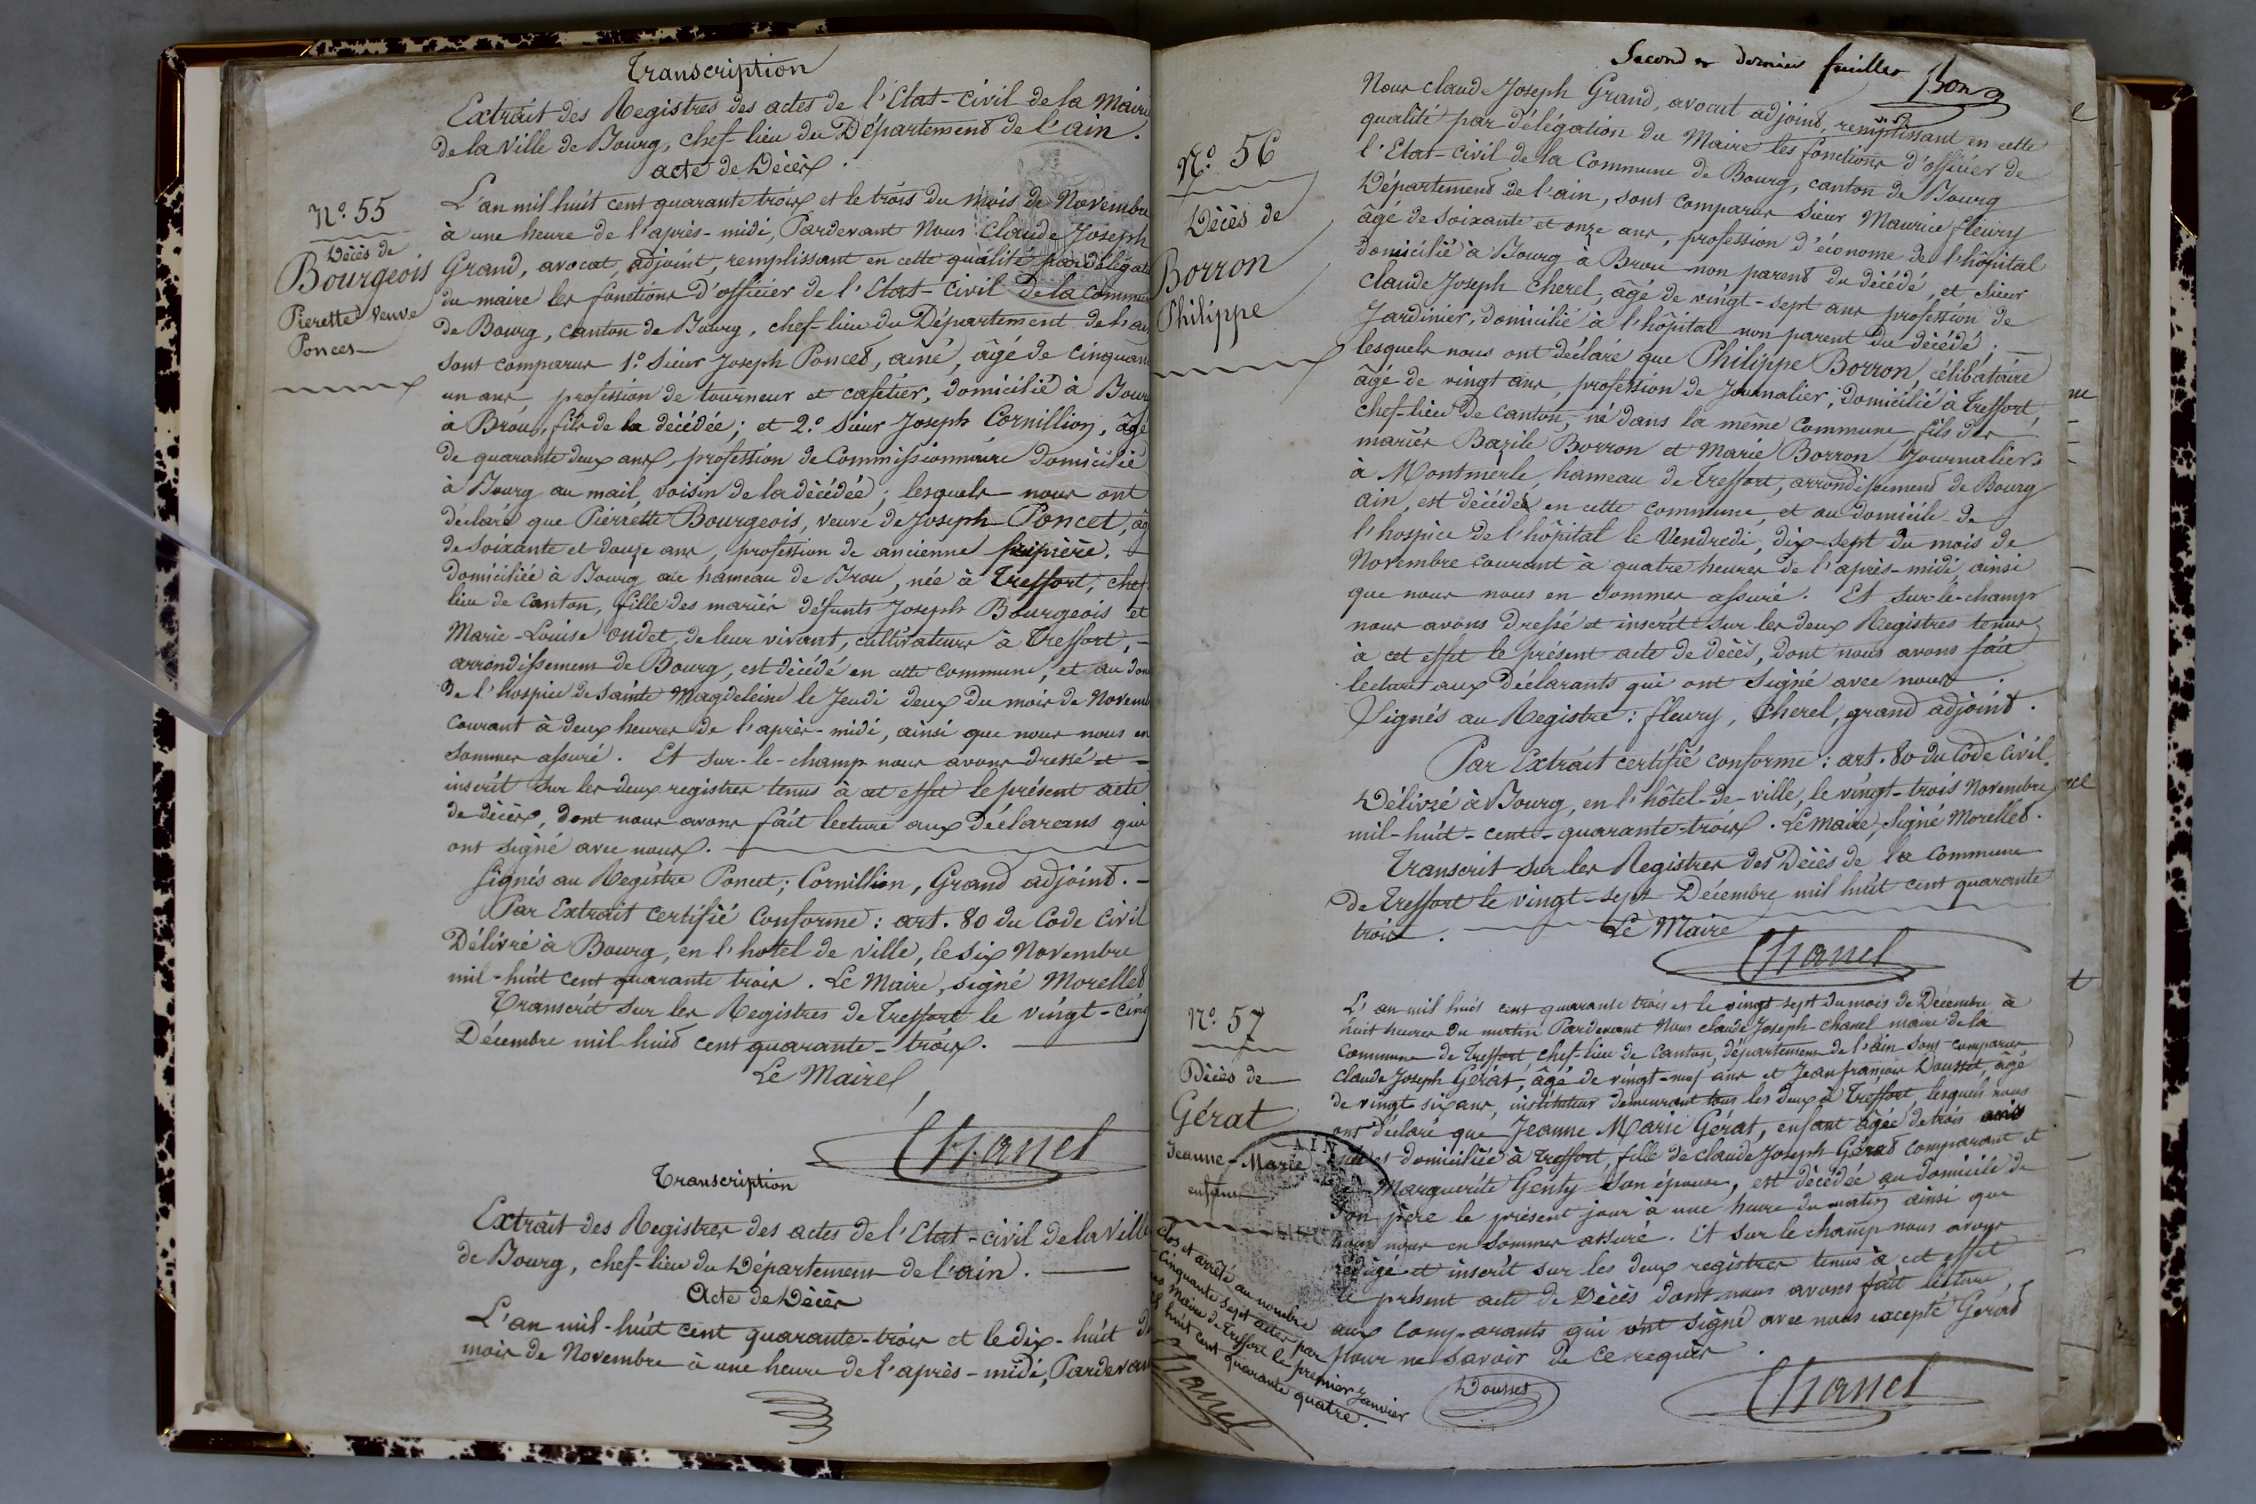 Transcription
Extrait des Registres des actes de l'Etat-civil de la Mairie
de la Ville de Bourg, chef-lieu du Département de l'ain.
acte de Décès.
N.º 55
Décès de
Bourgeois
Pierette veuve
Poncet
L'an mil huit cent quarante trois et le trois du mois de Novembre
à une heure de l'après-midi, Pardevant Nous Claude Joseph
Grand, avocat, adjoint, remplissant en cette qualité par délégat
du maire les fonctions d'officier de l'Etat-civil de la commun
de Bourg, canton de Bourg, chef-lieu du Département de l'ain
sont comparus 1.º Sieur Joseph Poncet, ainé, âgé de cinquante
un ans profession de tourneur et cafetier, domicilié à Bourg
à Brou, fils de la décédée; et 2.º Sieur Joseph Cornillion, âgé
de quarante deux ans, profession de Commissionnaire domicilié
à Bourg au mail, voisin de la décédée; lesquels nous ont
déclaré que Pierrette Bourgeois, veuve de Joseph Poncet, âg
de soixante et douze ans, profession de ancienne fripière,
domiciliée à Bourg au hameau de Brou, née à Treffort, chef
lieu de canton, fille des mariés défunts Joseph Bourgeois et
Marie-Louise Oudet, de leur vivant, cultivateurs à Treffort, -
arrondissement de Bourg, est décédé en cette commune, et au dom
de l'hospice de Sainte Magdeleine le Jeudi deux du mois de Novemb
courant à deux heures de l'après-midi, ainsi que nous nous en
sommes assuré. Et sur-le-champ nous avons dressé et -
inscrit sur les deux registres tenus à cet effet le présent acte
de décès, dont nous avons fait lecture aux déclarans qui
ont signé avec nous.
Signés au Registre Poncet; Cornillion, Grand adjoint. -
Par Extrait certifié Conforme: art. 80 du Code civil
Délivré à Bourg, en l'hotel de ville, le six Novembre
mil-huit cent quarante trois. Le Maire, signé Morellet
Transcrit sur les Registres de Treffort le vingt-cinq
Décembre mil huit cent quarante-trois.
Le Maire
Chanel
Transcription
Extrait des Registres des actes de l'Etat-civil de la Ville
de Bourg, chef-lieu du Département de l'ain.
Acte de Décès
L'an mil-huit cent quarante-trois et le dix-huit du
mois de Novembre à une heure de l'après-midi, Pardevant
Second et dernier feuillet Bon
N.º 56
Décès de
Borron
Philippe
Nous claude Joseph Grand, avocat adjoint, remplissant en cette
qualité par délégation du Maire les fonctions d'officier de
l'Etat-civil de la Commune de Bourg, canton de Bourg
Département de l'ain, sont comparus Sieur Maurice fleury
âgé de soixante et onze ans, profession d'économe de l'hôpital
domicilié à Bourg à Brou non parent du décédé, et Sieur
Claude Joseph Cherel, âgé de vingt-sept ans profession de
Jardinier, domicilié à l'hôpital non parent du décédé;
lesquels nous ont déclaré que Philippe Borron célibataire
âgé de vingt ans, profession de Journalier, domicilié à Treffort,
chef-lieu de canton, né dans la même commune, fils des
mariés Bazile Borron et Marie Borron Journaliers
à Montmerle, hameau de Treffort, arrondissement de Bourg
ain, est décédé en cette commune et au domicile de
l'hospice de l'hôpital le Vendredi, dix-sept du mois de
Novembre courant à quatre heures de l'après-midi, ainsi
que nous nous en sommes assuré. Et sur-le-champ
nous avons dressé et inscrit sur les deux Registres tenus
à cet effet le présent acte de décès, dont nous avons fait
lecture aux déclarants qui ont signé avec nous.
Signés au Registre: fleury, Cherel, grand adjoint.
Par Extrait certifié conforme: art. 80 du Code Civil.
Délivré à Bourg, en l'hôtel-de-ville, le vingt-trois Novembre
mil-huit-cent-quarante-trois. Le maire, Signé Morellet.
Transcrit sur les Registres des Décès de la commune
de Treffort le vingt-sept Décembre mil huit cent quarante
trois.
Le Maire
Chanel
N.º 57
Décès de
Gérat
Jeanne-Marie
enfant
L'an mil huit cent quarante trois et le vingt sept du mois de Décembre à
huit heures du matin Pardevant Nous claude Joseph chanel maire de la
Commune de Treffort chef-lieu de Canton, département de l'ain sont comparus
Claude Joseph Gérat, âgé de vingt-neuf ans et Jean françois Dousset, âgé
de vingt six ans, instituteur demeurant tous les deux à Treffort, lesquels nous
ont déclaré que Jeanne Marie Gérat, enfant âgée de trois
domiciliée à Treffort, fille de claude Joseph Gérat comparant et
Marguerite Genty son épouse, est décédée au domicile de
son père le présent jour à une heure du matin ainsi que
nous nous en sommes assuré. Et sur le champ nous avons
rédigé et inscrit sur les deux registres tenus à cet effet
le présent acte de Décès dont nous avons fait lecture,
aux comp-arants qui ont signé avec nous excepté Gérat
pour ne savoir de ce requis.
Dousset
Chanel
AIN
Clos et arrêté au nombre
Cinquante sept actes par
Maire de Treffort le premier Janvier
huit cent quarante quatre.
Chanel